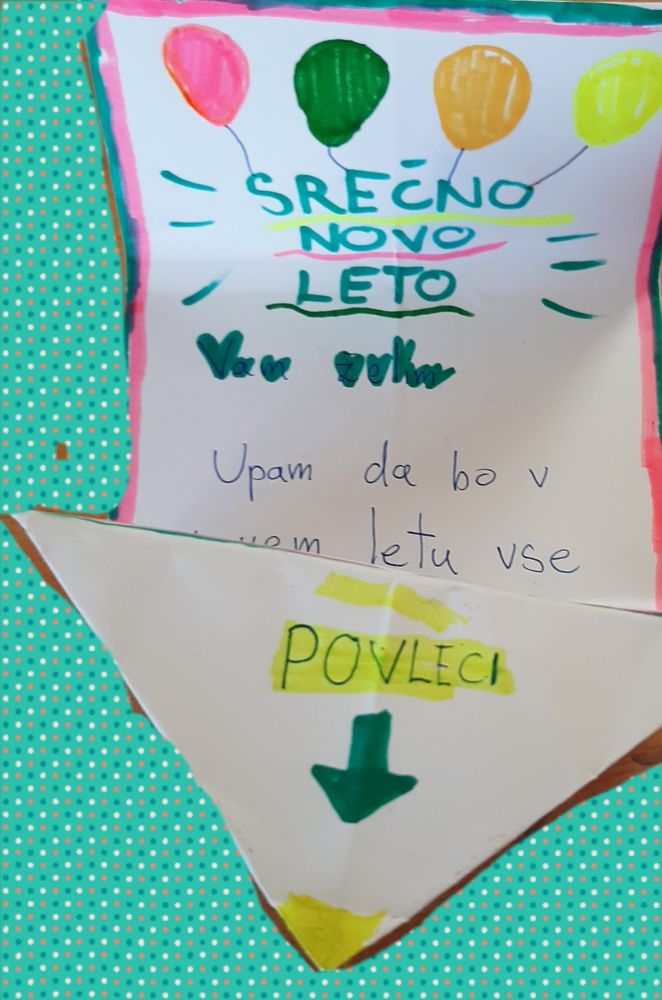 SREČNO
NOVO
LETO
Vam želim
Upam da bo v
letu vse
POVLECI